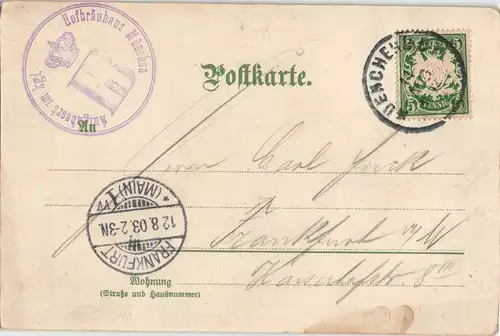 Hofbräuhaus München
Aufgabeort im kgl.
Postkarte.
MUENCHEN
5 5
PFENNIG
An
Herrn Carl Frick
Frankfurt a/M
Kaiserstr. 8 III
FRANKFURT
(MAIN) 1
12.8.03. 2-3N.
in
Wohnung
(Straße und Hausnummer)